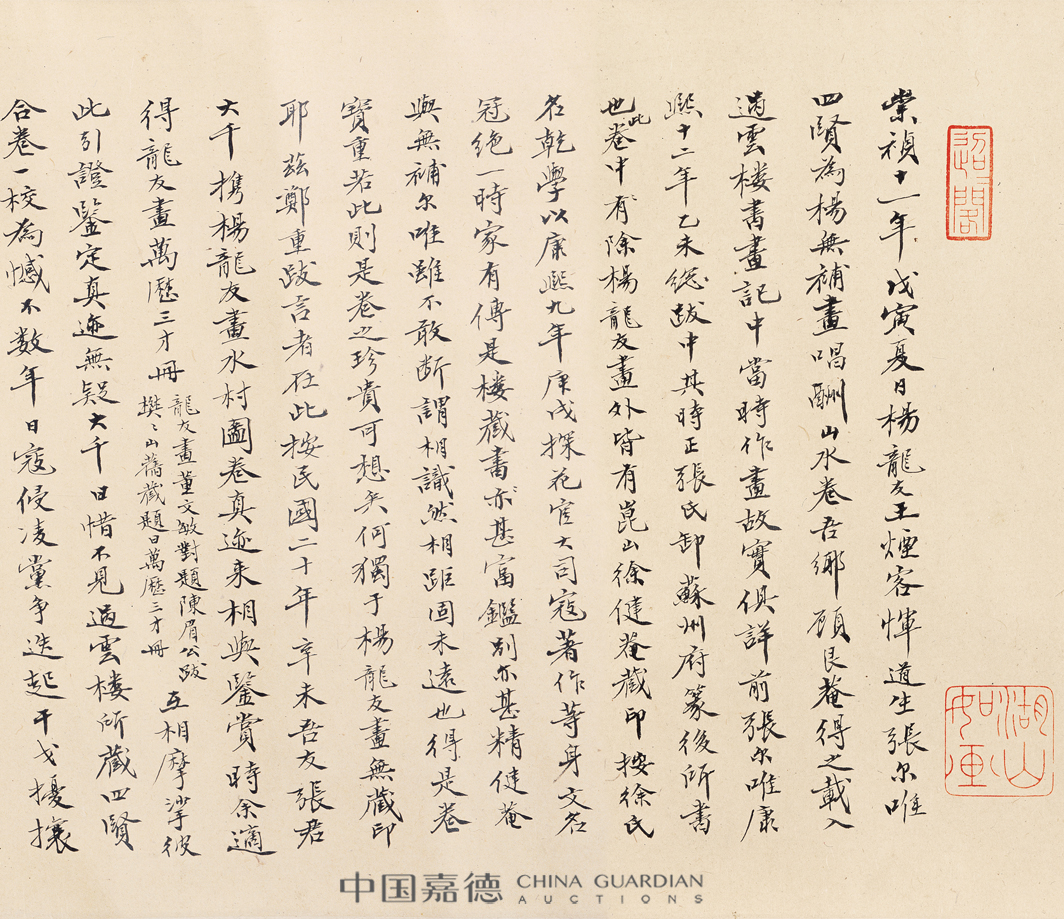 崇禎十一年戊寅夏日楊龍友王煙客惲道生張尔唯
四賢為楊無補畫唱酬山水卷吾鄉顧艮菴得之載入
過雲楼書畫記中當時作畫故實俱詳前張尔唯康
熙十二年乙未總跋中其時正張氏卸蘇州府篆後所書
也此卷中有除楊龍友畫外皆有崑山徐健菴藏印按徐氏
名乾學以康熙九年庚戌探花官大司寇著作等身文名
冠絶一時家有傳是楼藏書亦甚富鑑別亦甚精健菴
與無補尔唯雖不敢断謂相識然相距固未遠也得是卷
寶重若此則是卷之珍貴可想矣何獨于楊龍友畫無藏印
耶茲鄭重跋言者在此按民國二十年辛未吾友張君
大千攜楊龍友畫水村圖卷真迹来相與鑒賞時余適
得龍友畫萬歷三才冊龍友畫董文敏對題陳眉公跋
撰之山舊藏題曰萬歷三才冊互相摩挲彼
此引證鑒定真迹無疑大千曰惜不見過雲樓所藏四賢
合卷一校為憾不数年日寇侵凌黨争迭起干戈擾攘
湖山如画
中国嘉德 CHINA GUARDIAN
AUCTIONS